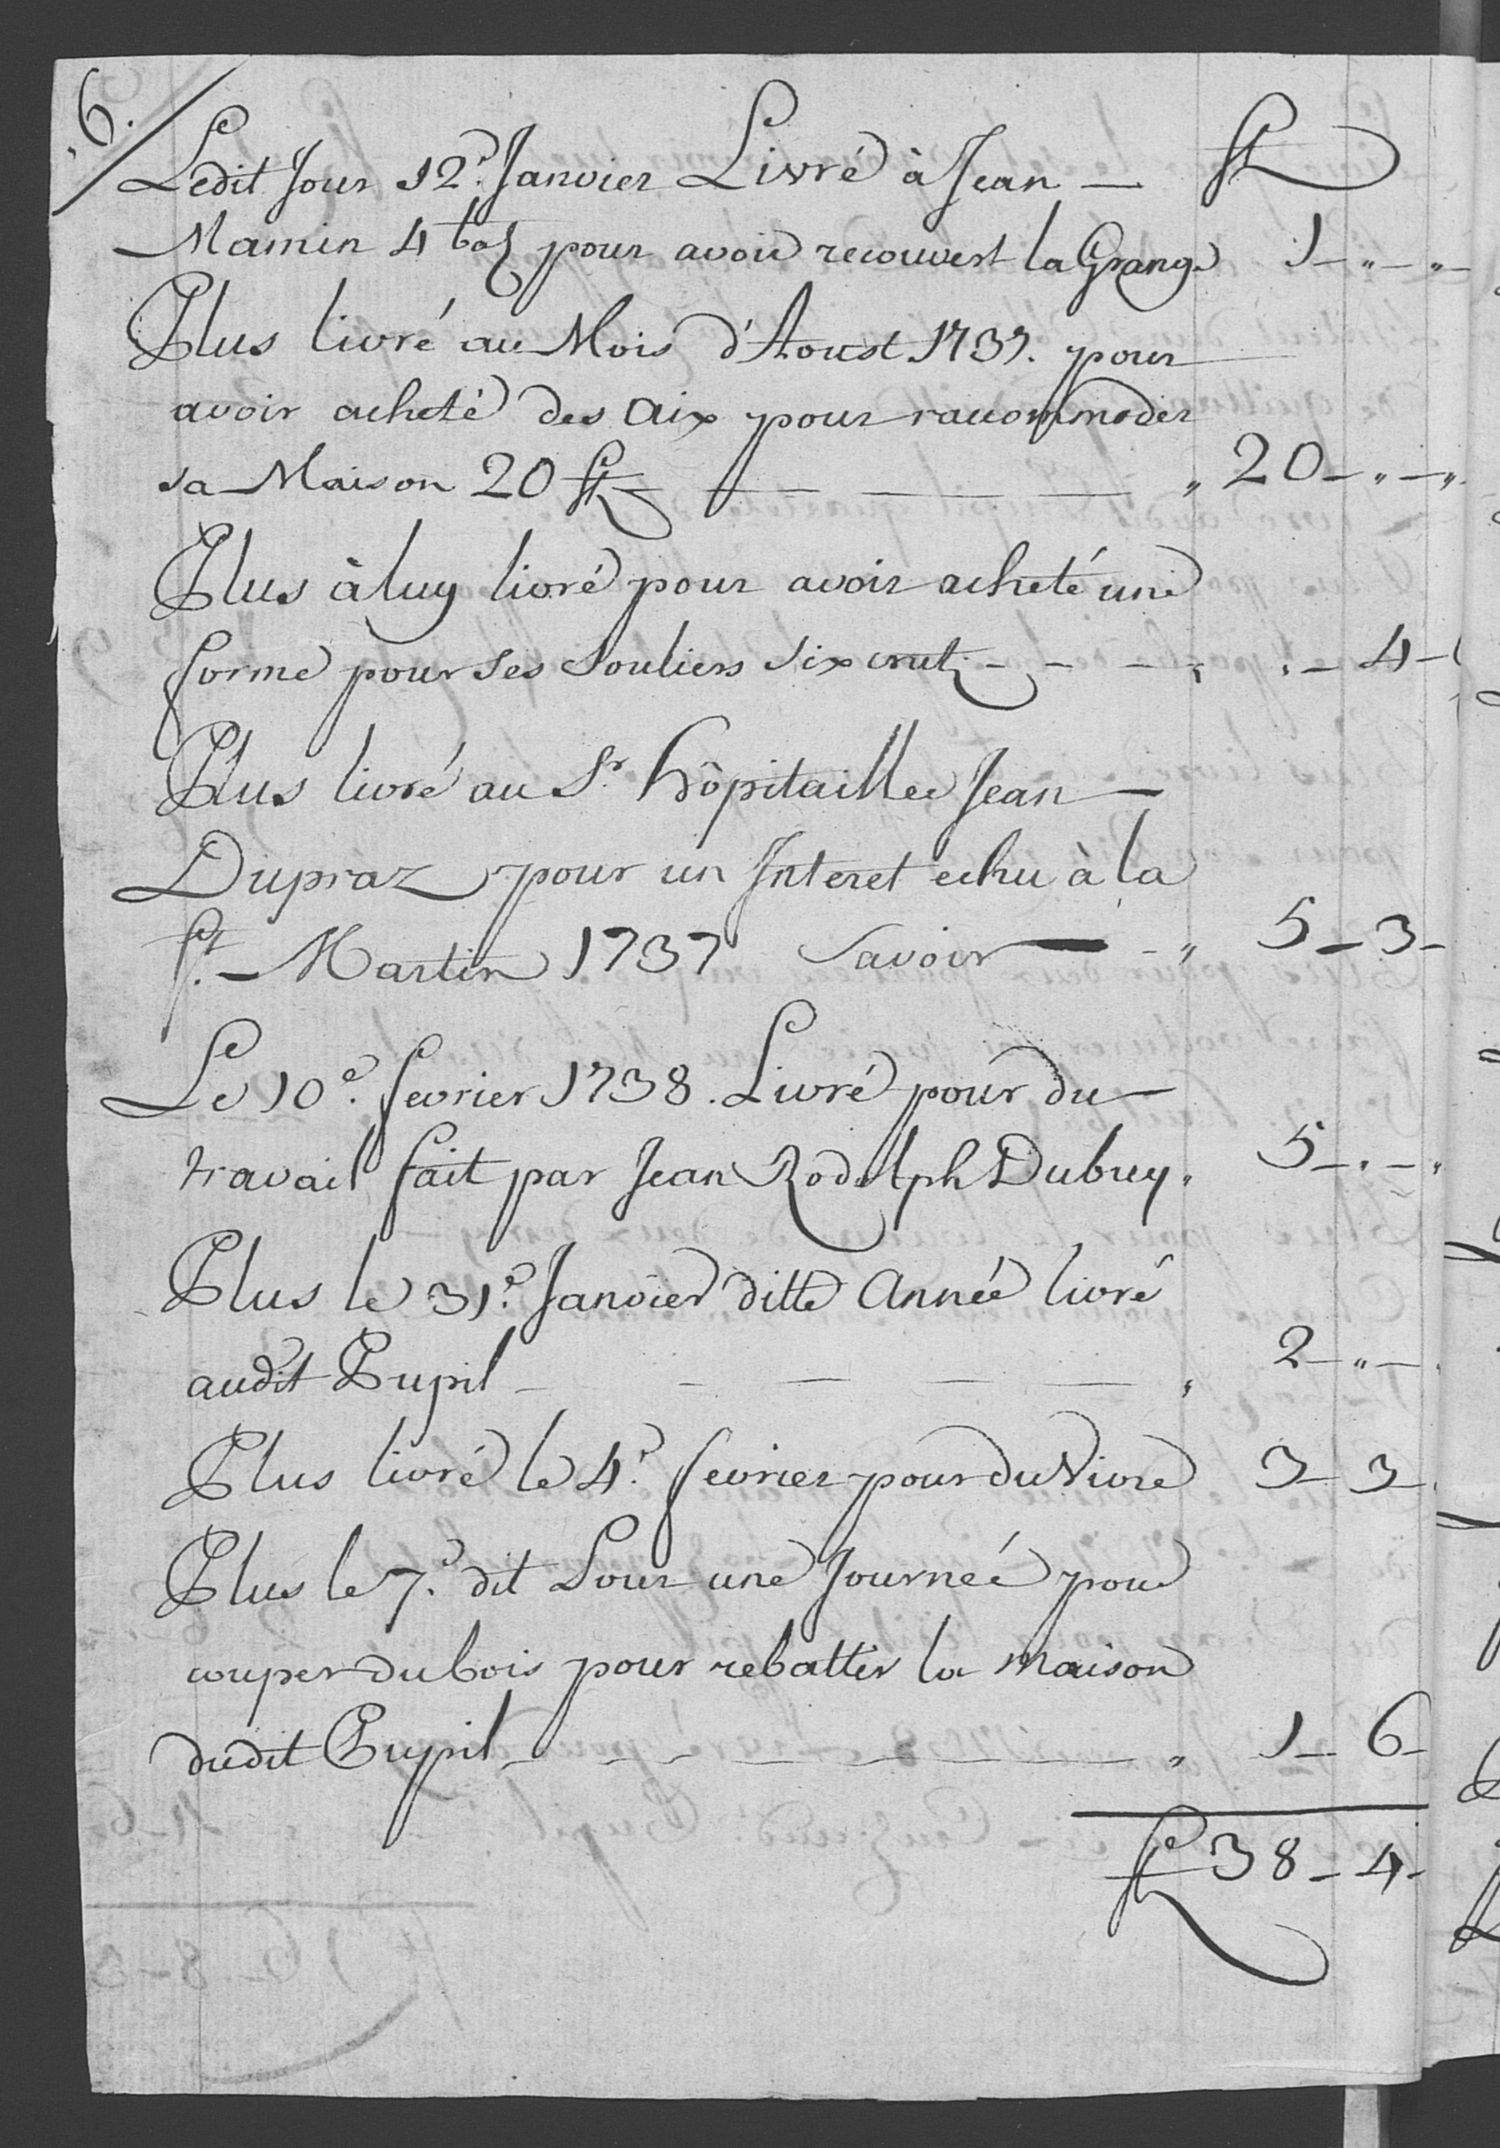 6.
Ledit Jour 12.e Janvier Livré à Jean — fl
Mamin 4 bz pour avoir recouvert la Grange 1 - " - "
Plus livré au Mois d'Aoust 1737. pour
avoir acheté des aix pour racommoder
sa Maison 20 fl — — — " 20 - " - "
Plus à luy livré pour avoir acheté une
forme pour ses Souliers six crutz - - - " " - 4 -
Plus livré au Sr. hôpitaille Jean —
Dupraz pour un Interet echu à la
St. - Martin 1737 Savoir — - " 5 - 3 -
Le 10e. fevrier 1738. Livré pour du —
travail fait par Jean Rodolph Dubuy. 5 - " - "
Plus le 31e. Janvier ditte Année livré
audit Pupil — — — — " 2 - " -
Plus livré le 4e. fevrier pour du Vivre 3 - 3 -
Plus le 7e. dit Pour une Journeé pour
couper du bois pour rebatter la maison
dudit Pupil - - - — — — " 1 - 6 -
fl 38 - 4 -